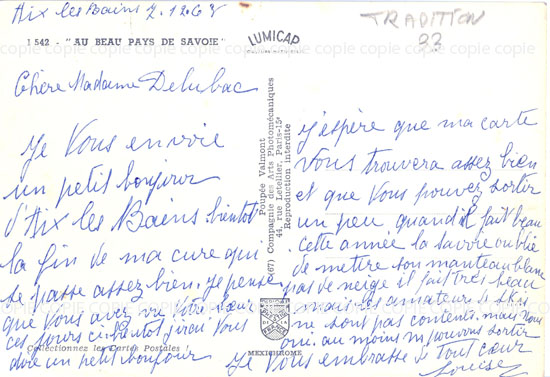 Aix les Bains 7.1.1968
TRADITION
33
1 542 - "AU BEAU PAYS DE SAVOIE"
LUMICAP
Chère Madame Delubac
Je Vous envoie
un petit bonjour
d'Aix les Bains bientôt
la fin de ma cure qui
se passe assez bien. je pense
que Vous avez vu Votre sœur
ces jours ci. bientot j'irai Vous
dire un petit bonjour
Collectionnez les Cartes Postales !
Poupée Valmont
(67) Compagnie des Arts Photomécaniques
44, rue Letellier, Paris-15e
Reproduction interdite
MEXICHROME
J'espère que ma carte
Vous trouvera assez bien
et que Vous pouvez sortir
un peu, quand il fait beau
cette année la savoie oublie
de mettre son manteau blanc
pas de neige il fait très beau
mais les amateurs de skis
ne sont pas contents. mais nous
on. au moins nous pouvons sortir
Je Vous embrasse de Tout cœur
Louise
copie copie copie copie copie copie